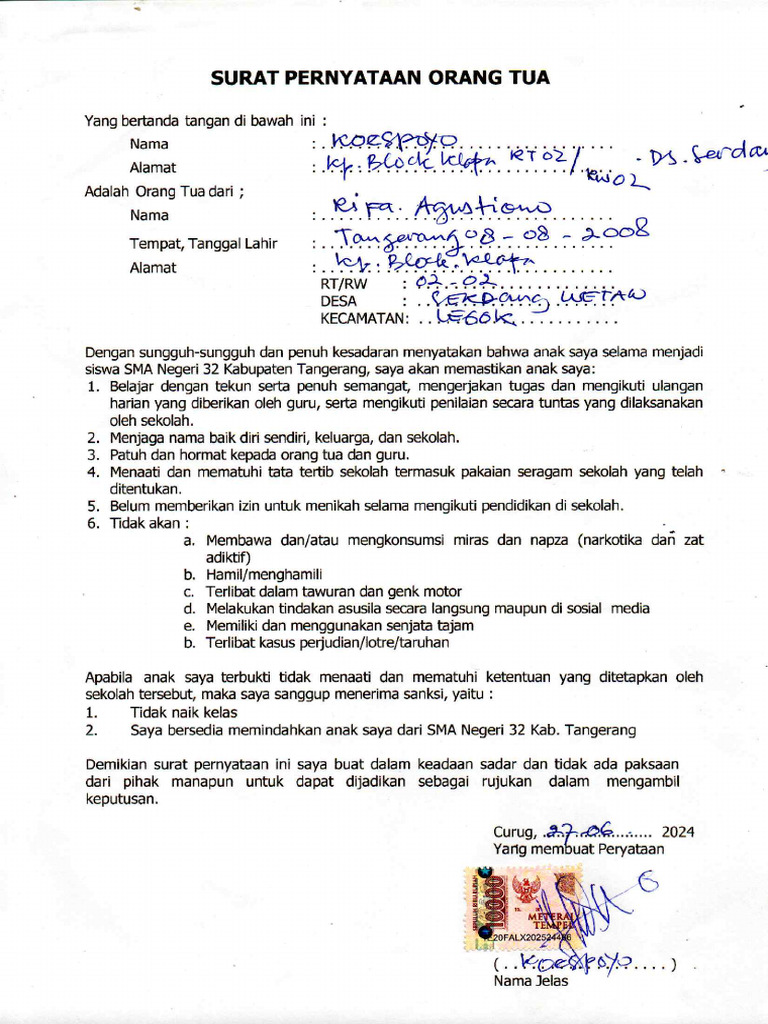 SURAT PERNYATAAN ORANG TUA
Yang bertanda tangan di bawah ini :
Nama : KOESPOYO
Alamat : Kp. Block Klapa RT 02/ RW 02 - Ds. Serdan
Adalah Orang Tua dari ;
Nama : Rifa. Agustiono
Tempat, Tanggal Lahir : Tangerang 08 - 08 - 2008
Alamat : Kp. Block. Klapa
RT/RW : 02 - 02
DESA : SERDANG WETAN
KECAMATAN: LEGOK
Dengan sungguh-sungguh dan penuh kesadaran menyatakan bahwa anak saya selama menjadi
siswa SMA Negeri 32 Kabupaten Tangerang, saya akan memastikan anak saya:
1. Belajar dengan tekun serta penuh semangat, mengerjakan tugas dan mengikuti ulangan
harian yang diberikan oleh guru, serta mengikuti penilaian secara tuntas yang dilaksanakan
oleh sekolah.
2. Menjaga nama baik diri sendiri, keluarga, dan sekolah.
3. Patuh dan hormat kepada orang tua dan guru.
4. Menaati dan mematuhi tata tertib sekolah termasuk pakaian seragam sekolah yang telah
ditentukan.
5. Belum memberikan izin untuk menikah selama mengikuti pendidikan di sekolah.
6. Tidak akan :
a. Membawa dan/atau mengkonsumsi miras dan napza (narkotika dan zat
adiktif)
b. Hamil/menghamili
c. Terlibat dalam tawuran dan genk motor
d. Melakukan tindakan asusila secara langsung maupun di sosial media
e. Memiliki dan menggunakan senjata tajam
b. Terlibat kasus perjudian/lotre/taruhan
Apabila anak saya terbukti tidak menaati dan mematuhi ketentuan yang ditetapkan oleh
sekolah tersebut, maka saya sanggup menerima sanksi, yaitu :
1. Tidak naik kelas
2. Saya bersedia memindahkan anak saya dari SMA Negeri 32 Kab. Tangerang
Demikian surat pernyataan ini saya buat dalam keadaan sadar dan tidak ada paksaan
dari pihak manapun untuk dapat dijadikan sebagai rujukan dalam mengambil
keputusan.
Curug, 27-06 2024
Yang membuat Peryataan
10000
METERAI
TEMPEL
(KOESPOYO)
Nama Jelas